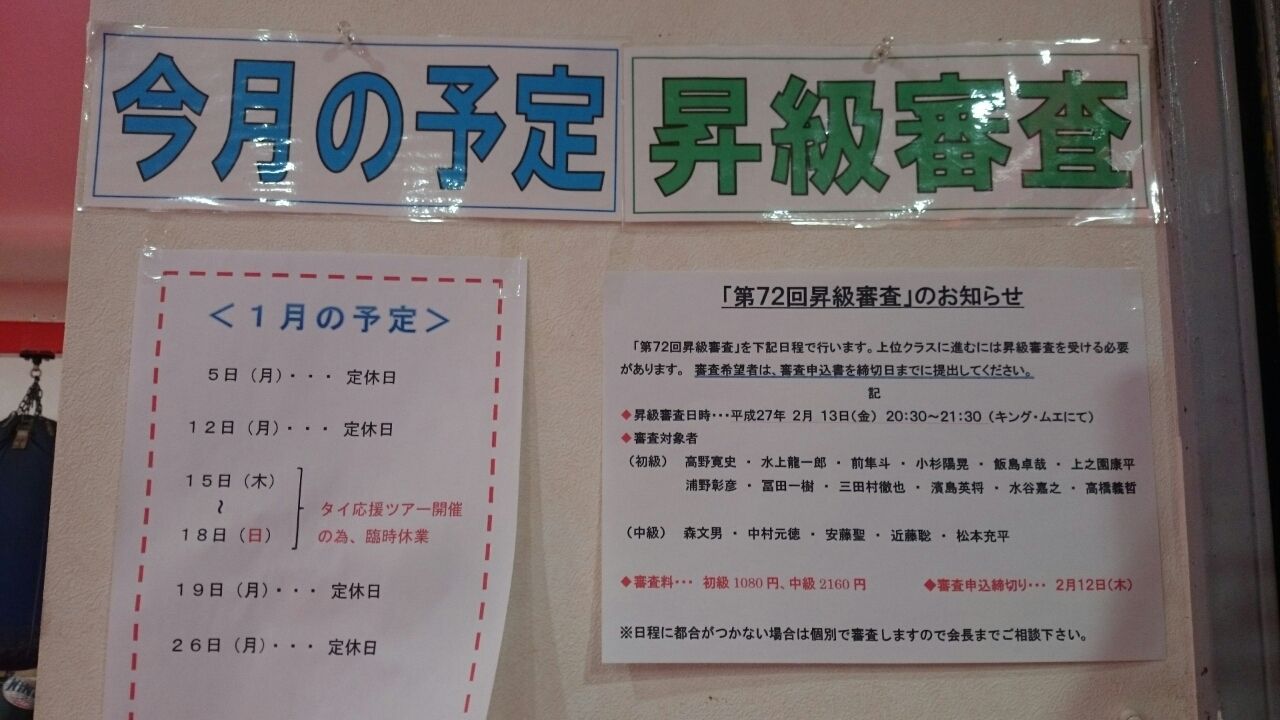 今月の予定
昇級審査
＜１月の予定＞
５日（月）・・・ 定休日
１２日（月）・・・ 定休日
１５日（木）
～
１８日（日）
タイ応援ツアー開催
の為、臨時休業
１９日（月）・・・ 定休日
２６日（月）・・・ 定休日
「第72回昇級審査」のお知らせ
「第72回昇級審査」を下記日程で行います。上位クラスに進むには昇級審査を受ける必要
があります。 審査希望者は、審査申込書を締切日までに提出してください。
記
◆昇級審査日時・・・平成27年 2月 13日(金) 20:30～21:30 (キング・ムエにて)
◆審査対象者
（初級） 高野寛史 ・ 水上龍一郎 ・ 前隼斗 ・ 小杉陽晃 ・ 飯島卓哉 ・ 上之園康平
浦野彰彦 ・ 冨田一樹 ・ 三田村徹也 ・ 濱島英将 ・ 水谷嘉之 ・ 高橋義哲
（中級） 森文男 ・ 中村元徳 ・ 安藤聖 ・ 近藤聡 ・ 松本充平
◆審査料・・・ 初級 1080 円、中級 2160 円
◆審査申込締切り・・・ 2月12日(木)
※日程に都合がつかない場合は個別で審査しますので会長までご相談下さい。